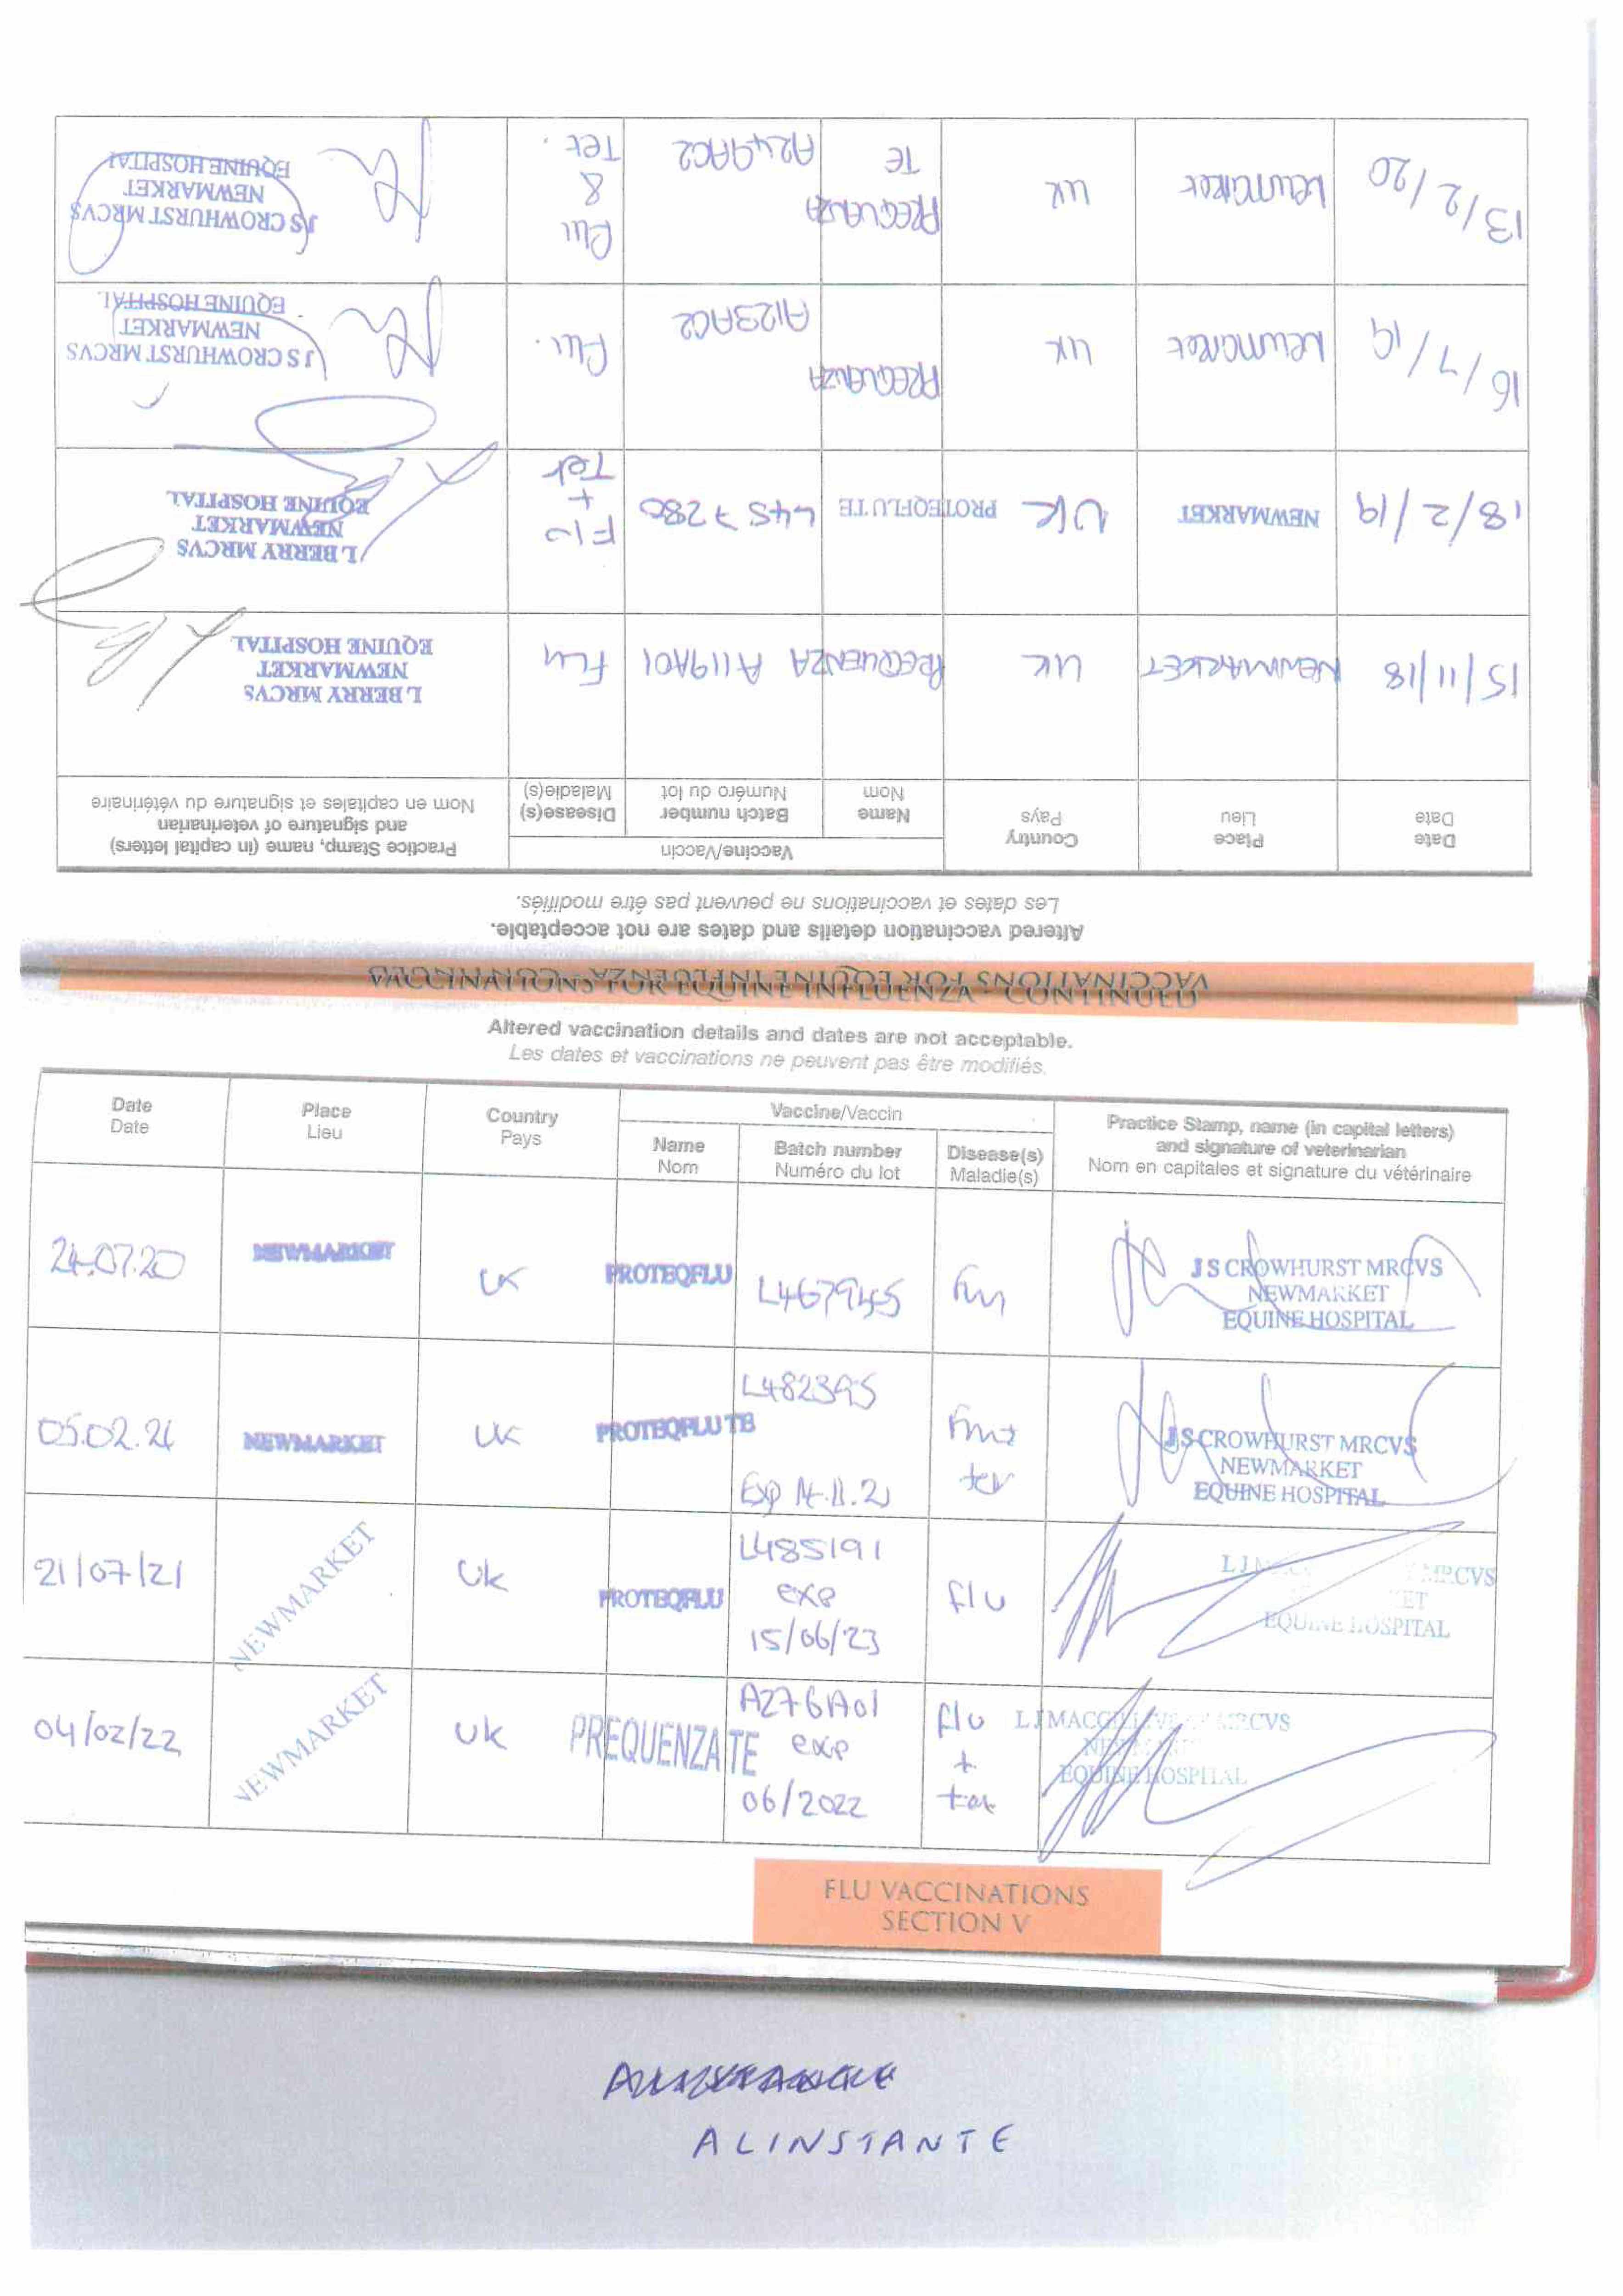 VACCINATIONS FOR EQUINE INFLUENZA - CONTINUED
Altered vaccination details and dates are not acceptable.
Les dates et vaccinations ne peuvent pas être modifiés.
Date Date
Place Lieu
Country Pays
Vaccine/Vaccin
Name Nom
Batch number Numéro du lot
Disease(s) Maladie(s)
Practice Stamp, name (in capital letters)
and signature of veterinarian
Nom en capitales et signature du vétérinaire
15/11/18 NEWMARKET UK PREQUENZA A119A01 FLU
L BERRY MRCVS
NEWMARKET
EQUINE HOSPITAL
18/2/19 NEWMARKET UK PROTEQFLU TE 4457280 Flu + Tet
L BERRY MRCVS
NEWMARKET
EQUINE HOSPITAL
16/7/19 Newmarket UK PREQUENZA A123A02 Flu.
J S CROWHURST MRCVS
NEWMARKET
EQUINE HOSPITAL
13/2/20 Newmarket UK PREQUENZA TE A249A02 Flu & Tet.
J S CROWHURST MRCVS
NEWMARKET
EQUINE HOSPITAL
Altered vaccination details and dates are not acceptable.
Les dates et vaccinations ne peuvent pas être modifiés.
Date Date
Place Lieu
Country Pays
Vaccine/Vaccin
Name Nom
Batch number Numéro du lot
Disease(s) Maladie(s)
Practice Stamp, name (in capital letters)
and signature of veterinarian
Nom en capitales et signature du vétérinaire
24.07.20 NEWMARKET UK PROTEQFLU L467945 Flu
J S CROWHURST MRCVS
NEWMARKET
EQUINE HOSPITAL
05.02.21 NEWMARKET UK PROTEQFLU TE L482395 Exp 14.11.21 Flu + tet
J S CROWHURST MRCVS
NEWMARKET
EQUINE HOSPITAL
21/07/21 NEWMARKET Uk PROTEQFLU L485191 exp 15/06/23 flu
L J MRCVS
EQUINE HOSPITAL
04/02/22 NEWMARKET Uk PREQUENZA TE A276A01 exp 06/2022 flu + tet
MRCVS
EQUINE HOSPITAL
FLU VACCINATIONS
SECTION V
ALINSTANTE